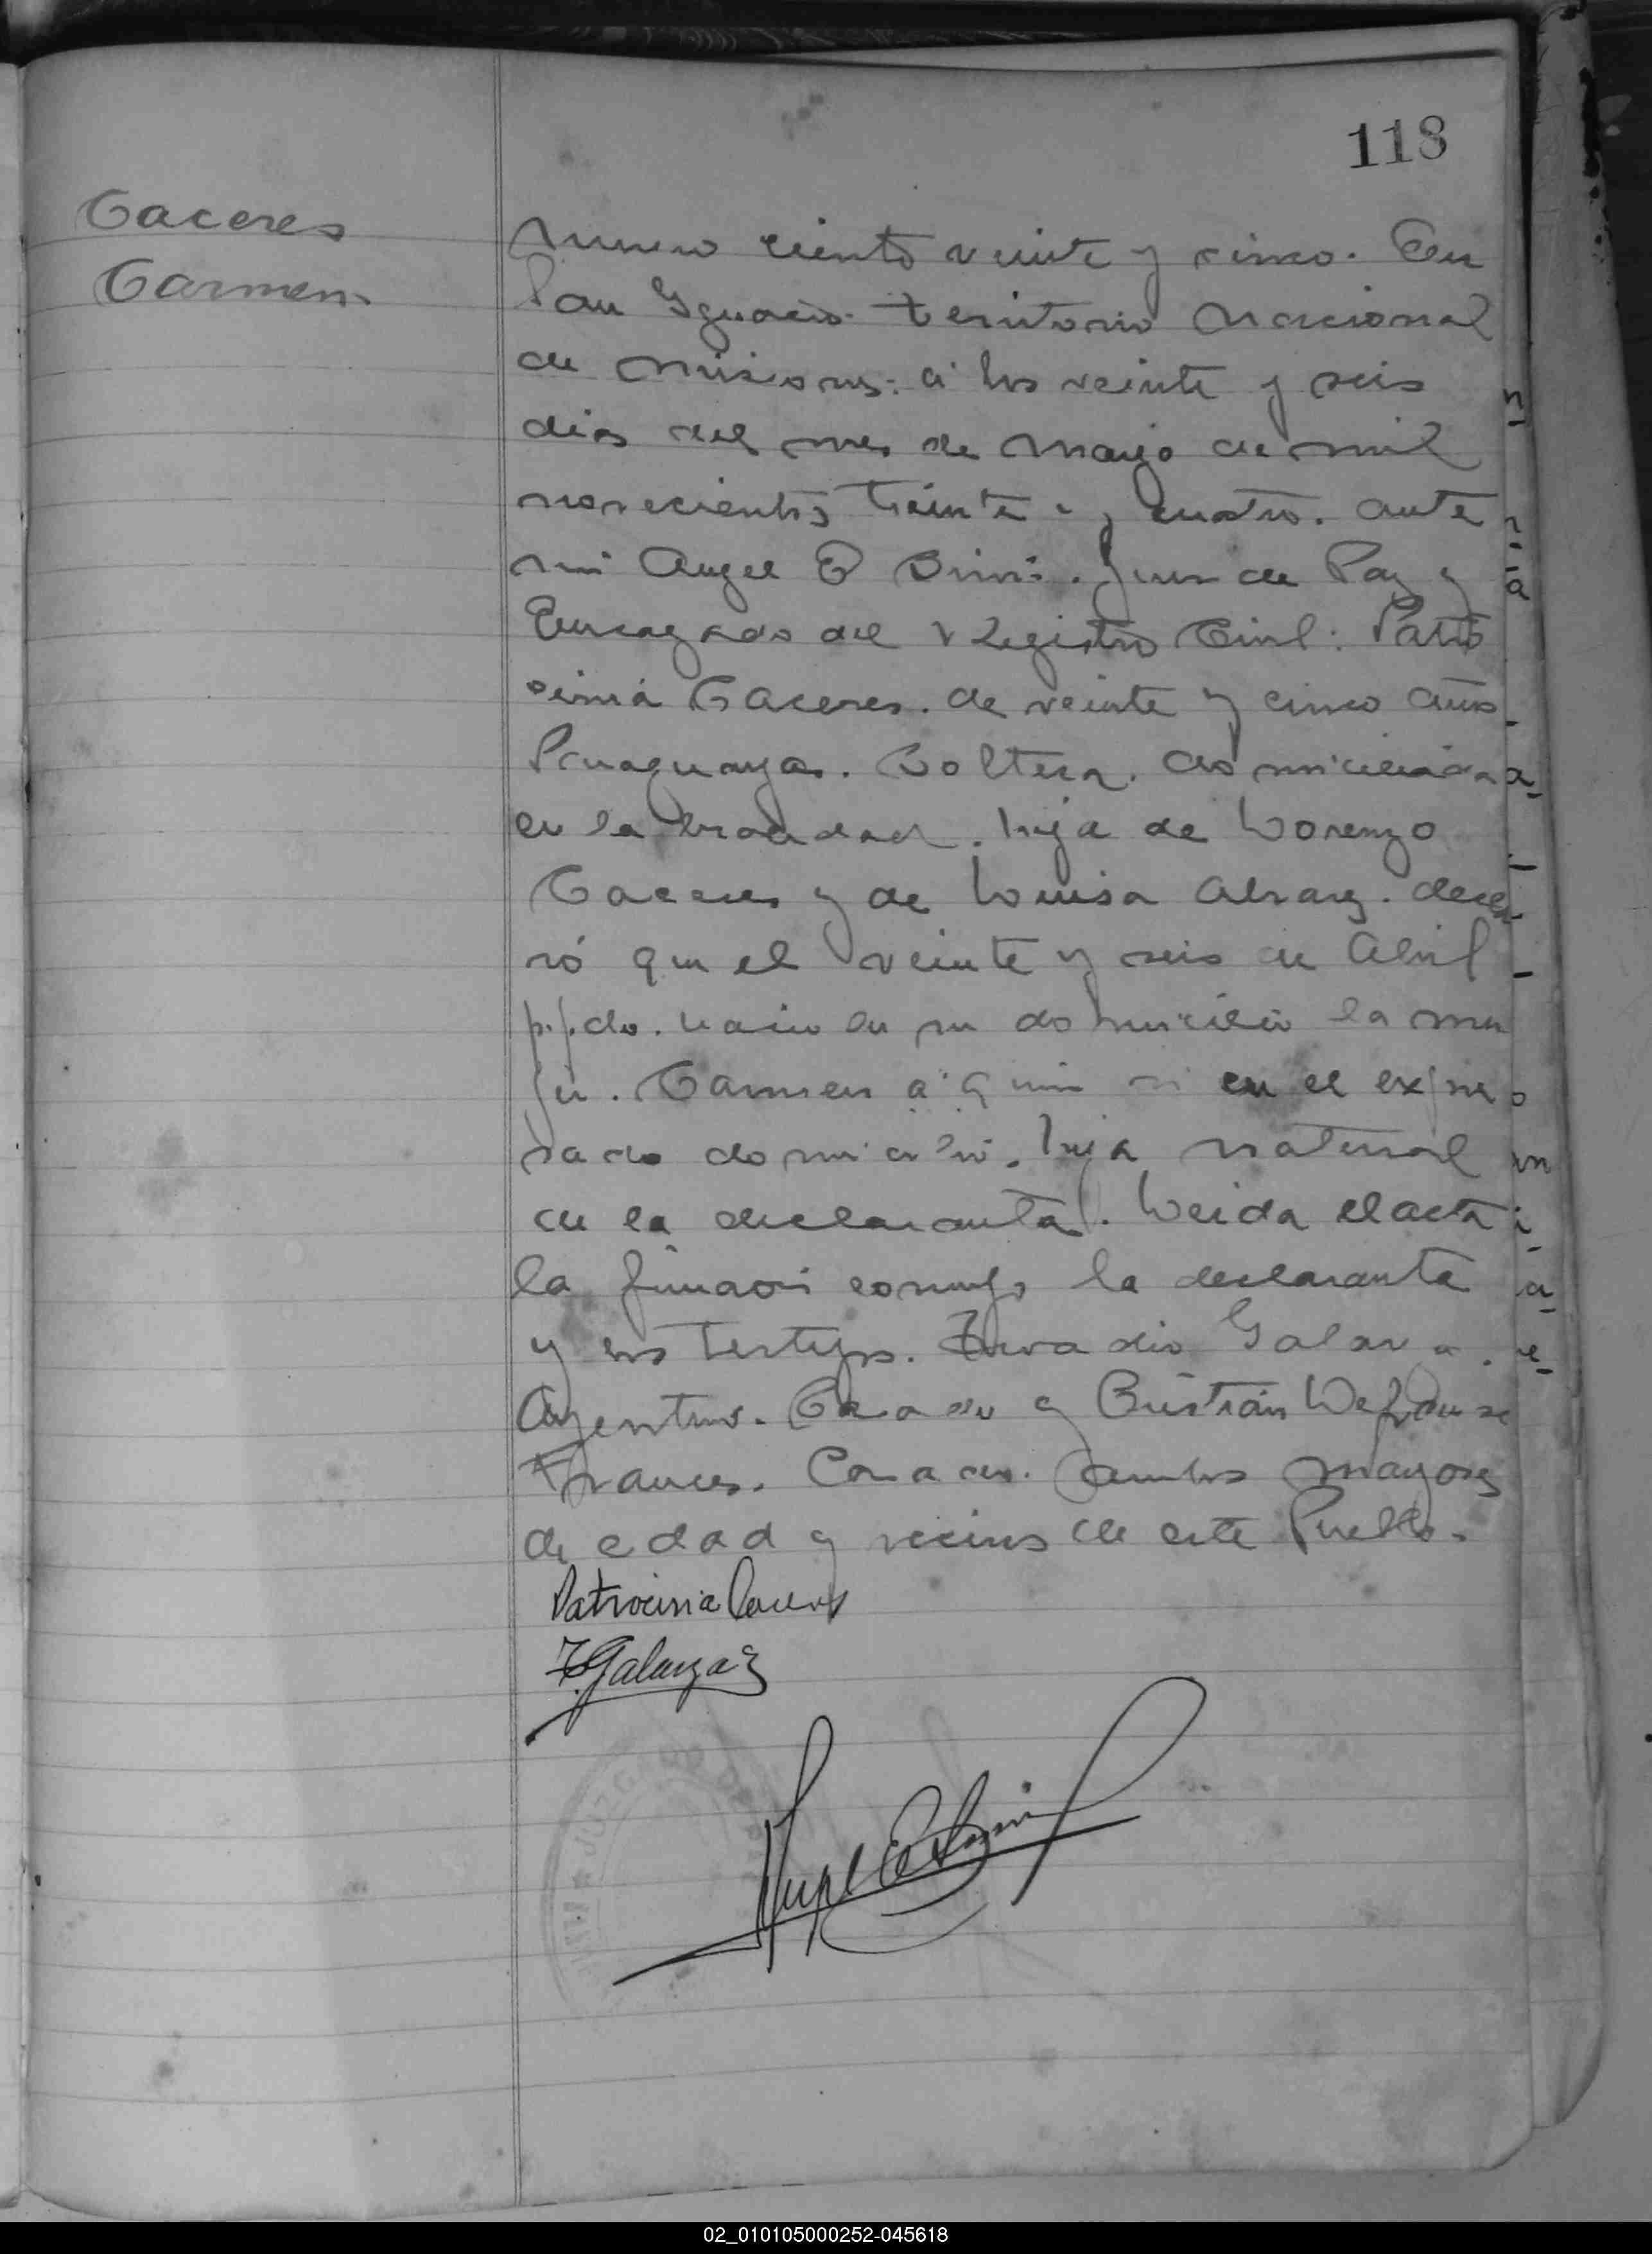 118
Caceres
Carmen
Numero ciento veinte y cinco. En
San Ygnacio. territorio Nacional
de Misiones. á los veinte y seis
dias del mes de Mayo de mil
novecientos treinta y cuatro. ante
mi Angel E Bini. Juez de Paz y
Encargado del Registro Civil: Patro
cinia Caceres. de veinte y cinco años
Paraguaya. Soltera. domiciliada
en la localidad. hija de Lorenzo
Caceres y de Louisa Alvarez. decla
ró que el veinte y seis de Abril
p.pdo. nacio en su domicilio la mu
jer. Carmen á quien vi en el expre
sado domicilio. hija natural
de la declarante. Leida el acta
la firmaron conmigo la declarante
y los testigos. Galarza.
Argentino. Casado y Cristián
Frances. Casado. ambos mayores
de edad y vecinos de este Pueblo.
Patrocinia Caceres
F. Galarza
JUZGADO DE
Angel E Bini
02_010105000252-045618